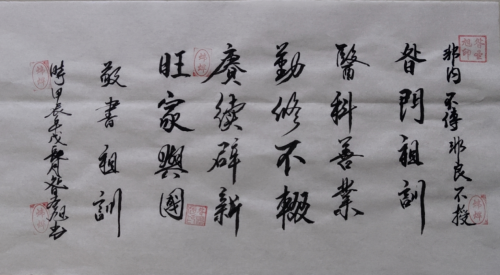 非内不傳非良不授
昝門祖訓
醫科善業
勤修不輟
賡續辟新
旺家興國
敬書祖訓
時甲辰年戊辰月昝